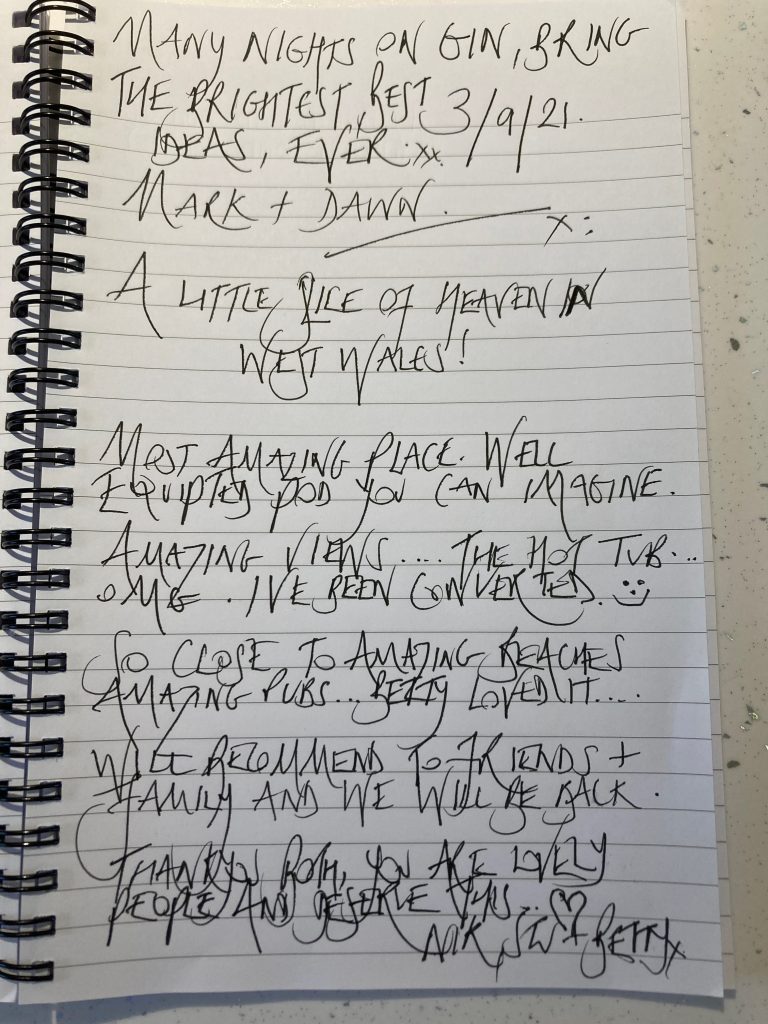 MANY NIGHTS ON GIN, BRING
THE BRIGHTEST, BEST 3/9/21.
IDEAS, EVER. xx
MARK + DAWN.
x:
A LITTLE PILE OF HEAVEN IN
WEST WALES!
MOST AMAZING PLACE. WELL
EQUIPTED POD YOU CAN IMAGINE.
AMAZING VIEWS.... THE HOT TUB...
OMG. I'VE BEEN CONVERTED. :)
SO CLOSE TO AMAZING BEACHES
AMAZING PUBS... BETTY LOVED IT....
WILL RECOMMEND TO FRIENDS +
FAMILY AND WE WILL BE BACK.
THANKYOU BOTH, YOU ARE LOVELY
PEOPLE AND DESERVE THIS.. ♡
+ BETTY x